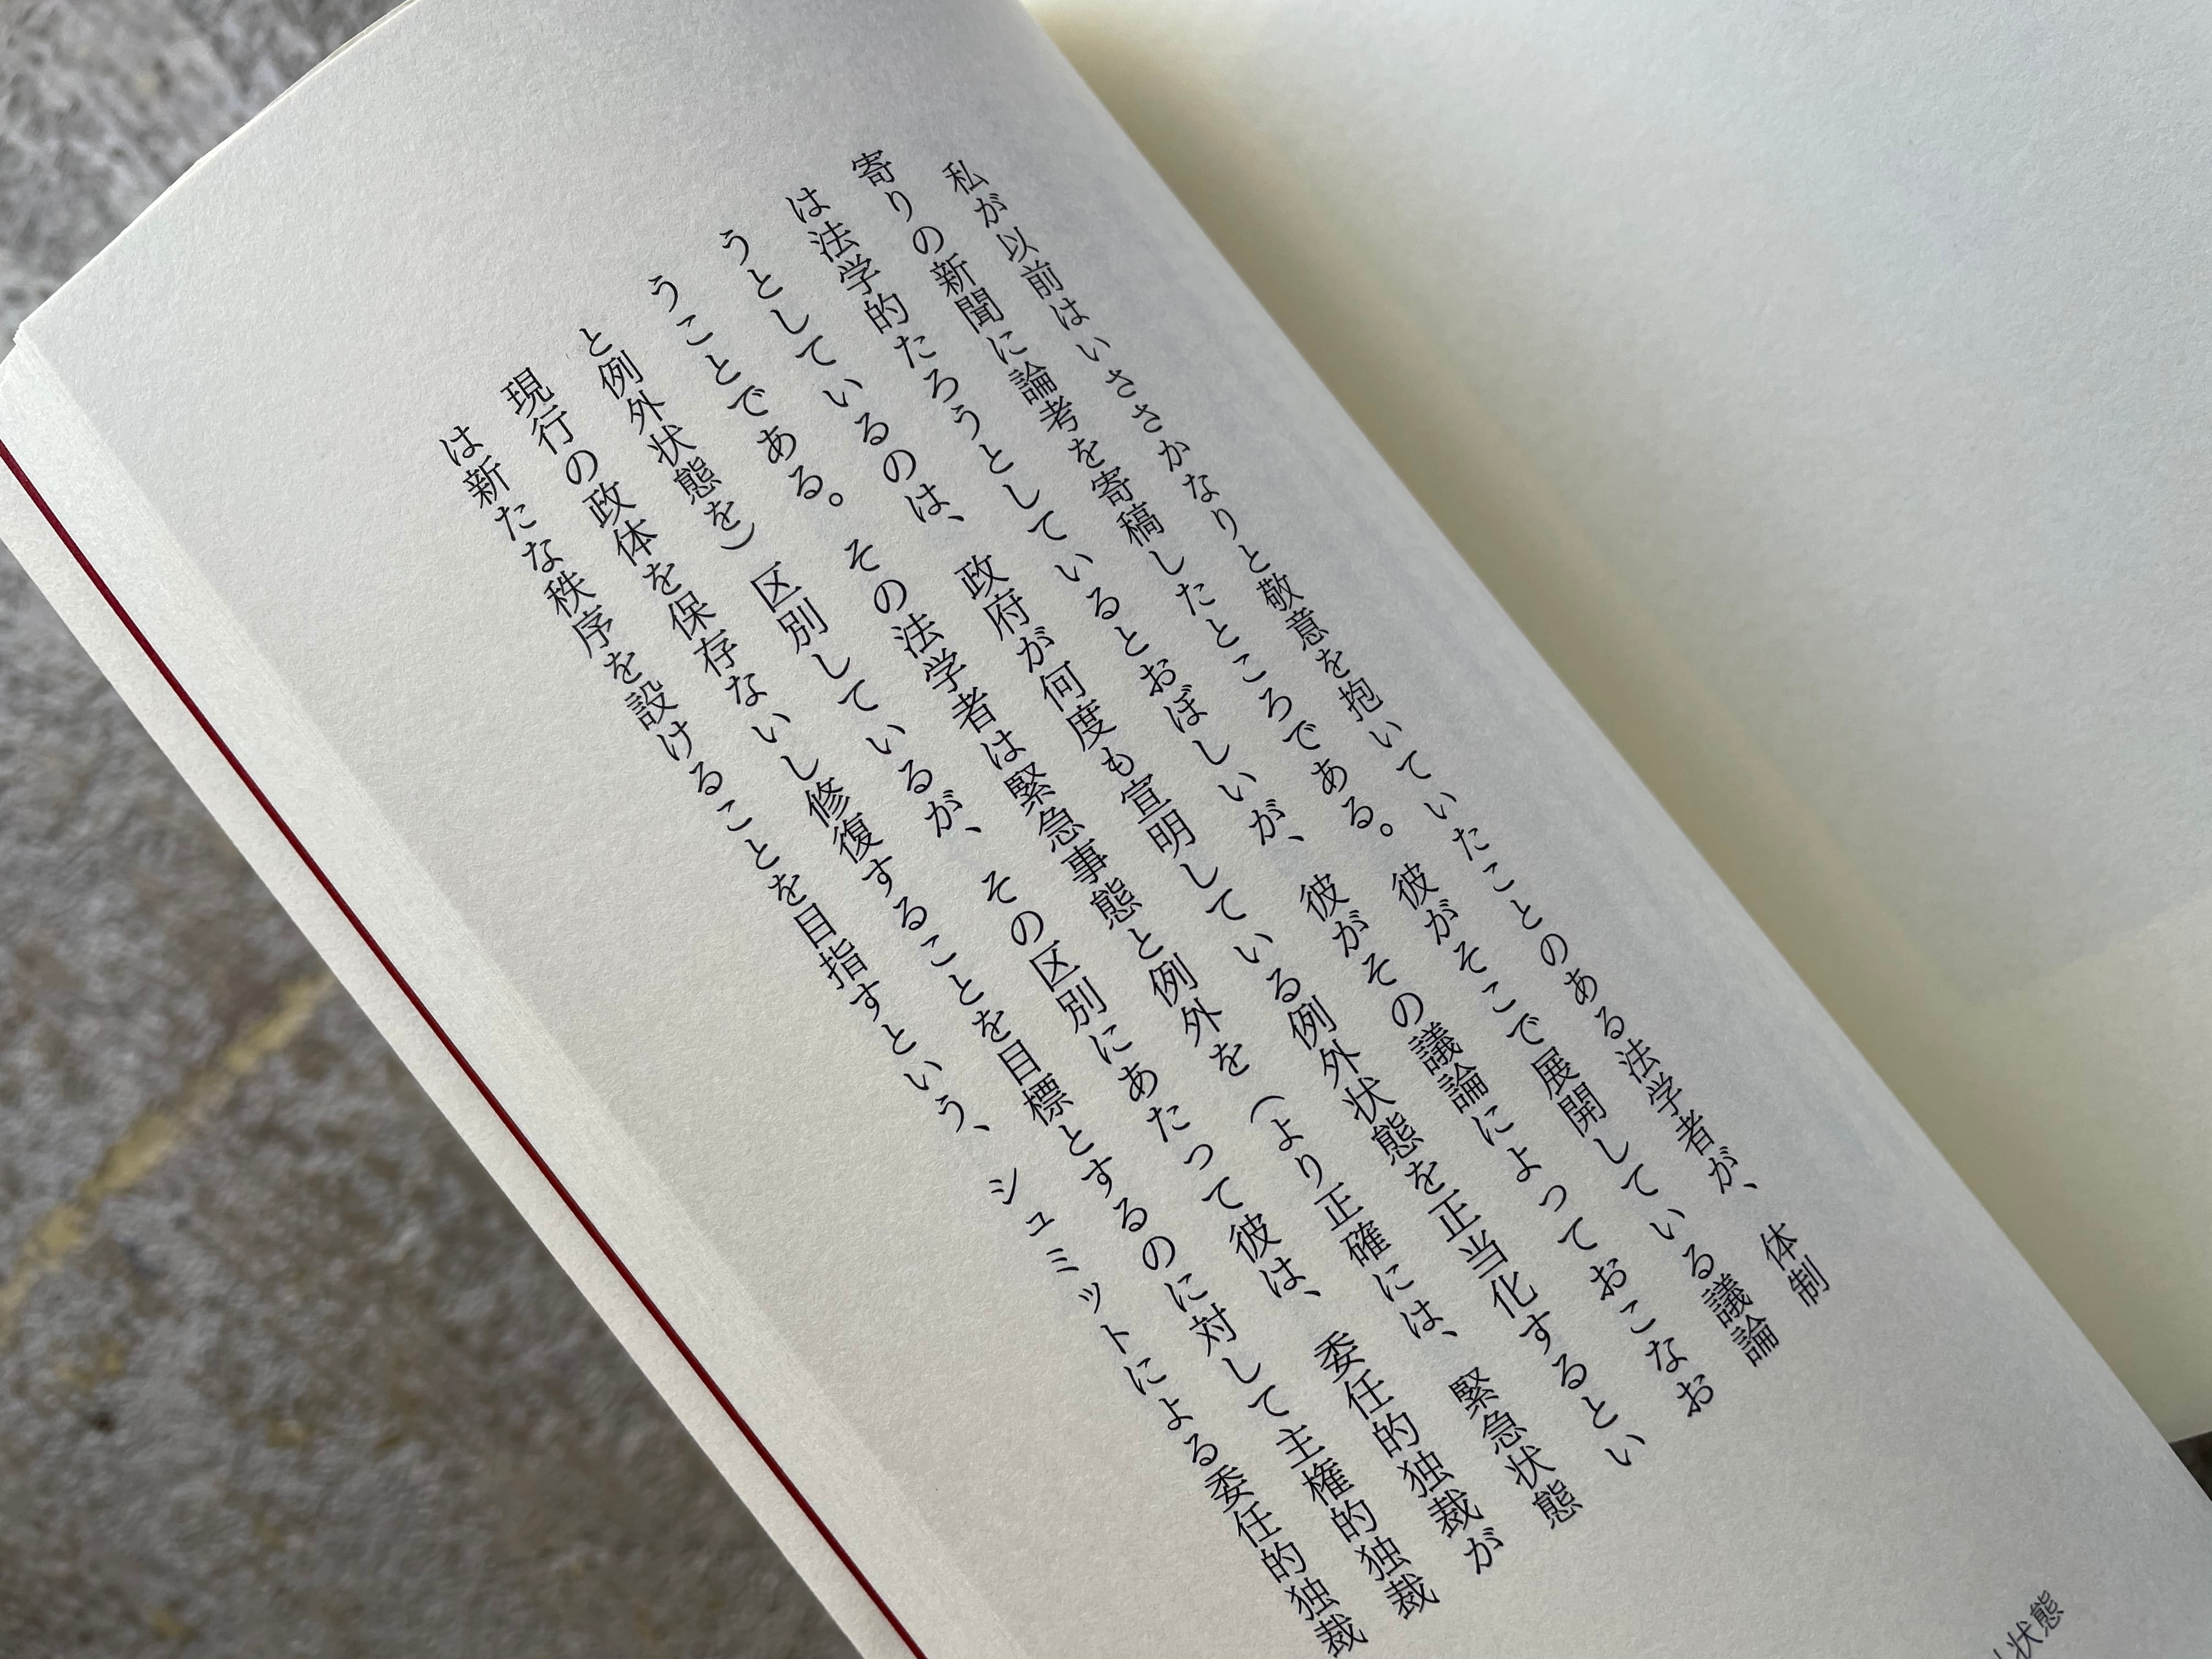 私が以前はいささかなりと敬意を抱いていたことのある法学者が、体制
寄りの新聞に論考を寄稿したところである。彼がそこで展開している議論
は法学的たろうとしているとおぼしいが、彼がその議論によっておこなお
うとしているのは、政府が何度も宣明している例外状態を正当化するとい
うことである。その法学者は緊急事態と例外を（より正確には、緊急状態
と例外状態を）区別しているが、その区別にあたって彼は、委任的独裁が
現行の政体を保存ないし修復することを目標とするのに対して主権的独裁
は新たな秩序を設けることを目指すという、シュミットによる委任的独裁
状態